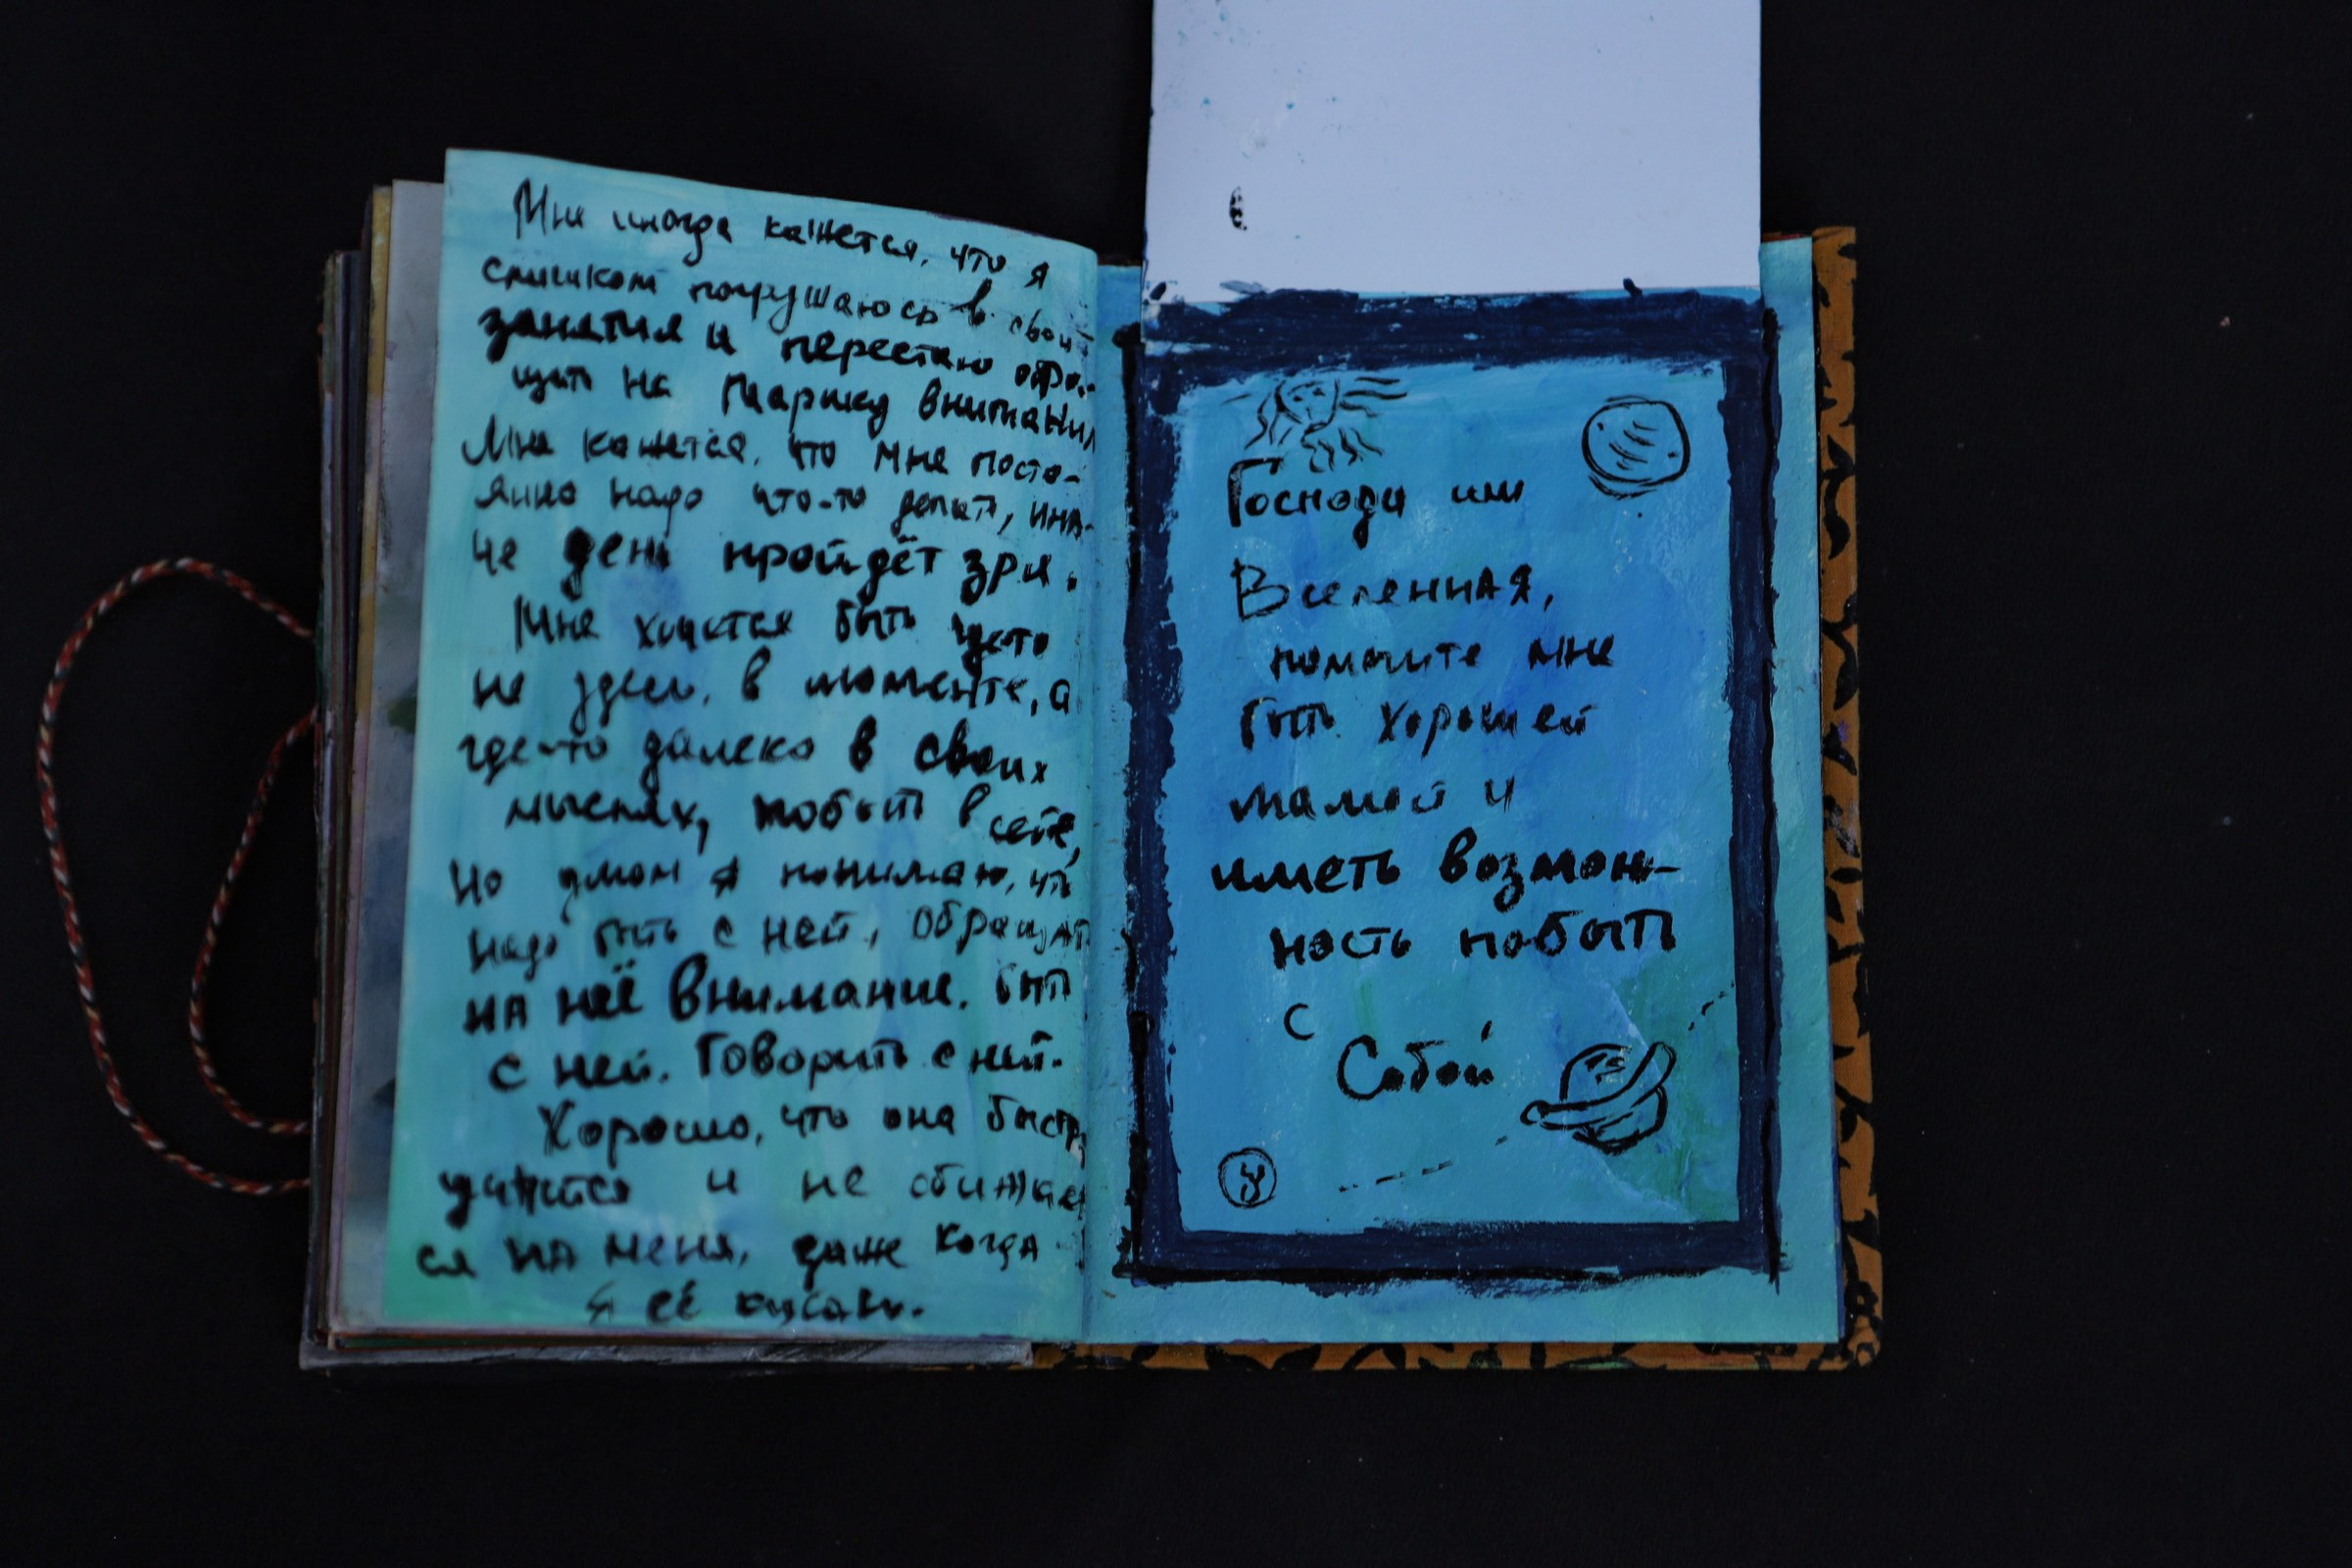 Мне иногда кажется, что я
слишком погружаюсь в свои
занятия и перестаю обра-
щать на Машку внимани
Мне кажется, что мне посто-
янно надо что-то делать, ина-
че день пройдёт зря.
Мне хочется быть где-то
не здесь, в моменте, а
где-то далеко в своих
мыслях, побыть в себе,
но умом я понимаю, что
надо быть с ней, обращать
на неё внимание. Быть
с ней. Говорить с ней.
Хорошо, что она быстро
учится и не обижает
ся на меня, даже когда
я её
Господи или
Вселенная,
помогите мне
быть хорошей
мамой и
иметь возмож-
ность побыть
с
Собой